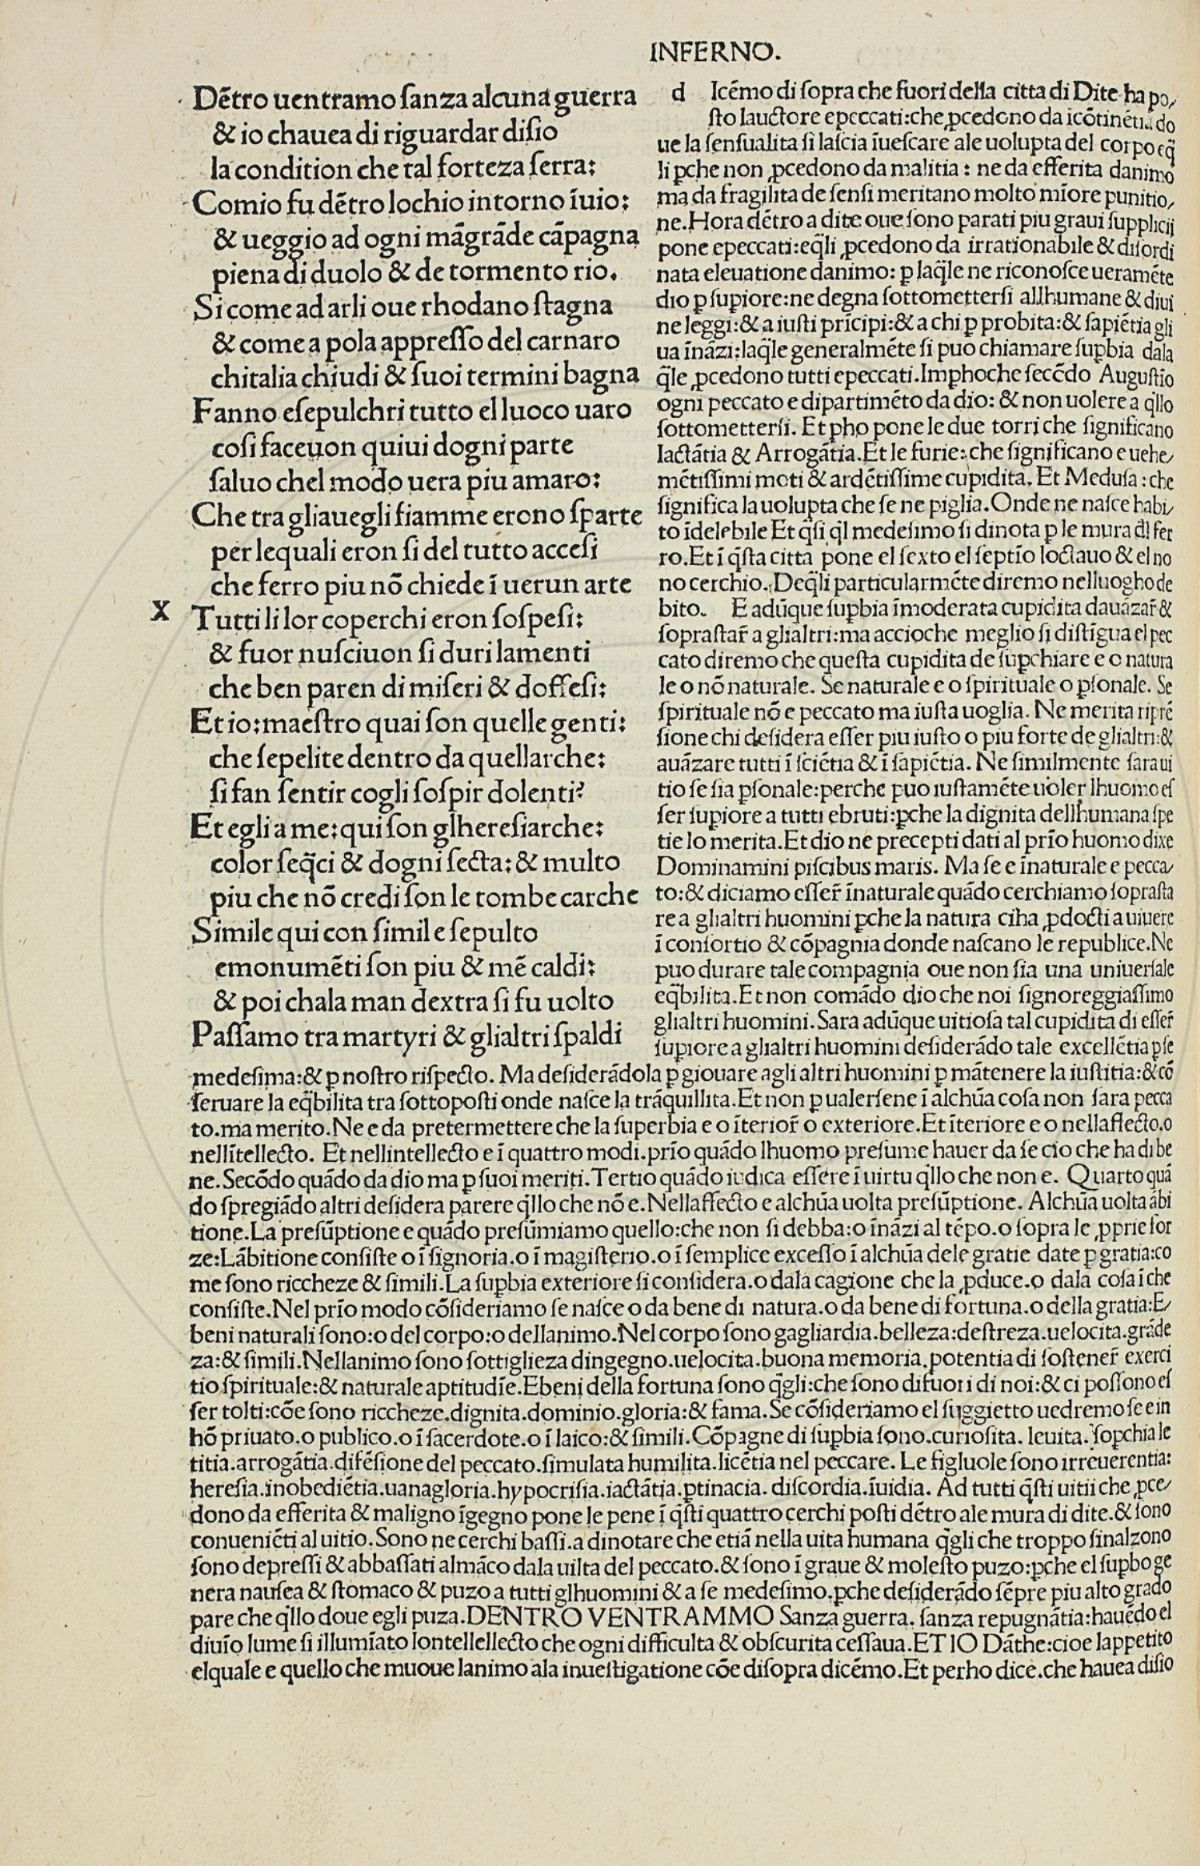 INFERNO.
Dẽtro uentramo ſanza alcuna guerra
& io chauea di riguardar diſio
la condition che tal forteza ſerra:
Comio fu dẽtro lochio intorno ĩuio:
& ueggio ad ogni mãgrãde cãpagna
piena di duolo & de tormento rio.
Si come ad arli oue rhodano ſtagna
& come a pola appreſſo del carnaro
chitalia chiudi & ſuoi termini bagna
Fanno eſepulchri tutto el luoco uaro
coſi faceuon quiui dogni parte
ſaluo chel modo uera piu amaro:
Che tra gliauegli fiamme erono ſparte
per lequali eron ſi del tutto acceſi
che ferro piu nõ chiede ĩ uerun arte
X
Tutti li lor coperchi eron ſoſpeſi:
& fuor nuſciuon ſi duri lamenti
che ben paren di miſeri & doffeſi:
Et io: maeſtro quai ſon quelle genti:
che ſepelite dentro da quellarche:
ſi fan ſentir cogli ſoſpir dolenti?
Et egli a me: qui ſon glhereſiarche:
color ſeq̃ci & dogni ſecta: & multo
piu che nõ credi ſon le tombe carche
Simile qui con ſimile ſepulto
emonumẽti ſon piu & mẽ caldi:
& poi chala man dextra ſi fu uolto
Paſſamo tra martyri & glialtri ſpaldi
d Icẽmo di ſopra che fuori della citta di Dite ha po/
ſto lauctore epeccati: che ꝓcedono da icõtinẽtia do
ue la ſenſualita ſi laſcia ĩueſcare ale uolupta del corpo eq̃
li ꝑche non ꝓcedono da malitia: ne da efferita danimo
ma da fragilita de ſenſi meritano molto mĩore punitio/
ne. Hora dẽtro a dite oue ſono parati piu graui ſupplicii
pone epeccati: eq̃li ꝓcedono da irrationabile & diſordi
nata eleuatione danimo: ꝑ laq̃le ne riconoſce ueramẽte
dio ꝑ ſuꝑiore: ne degna ſottometterſi allhumane & diui
ne leggi: & a iuſti prĩcipi: & a chi ꝑ probita: & ſapiẽtia gli
ua ĩnãzi: laq̃le generalmẽte ſi puo chiamare ſuꝑbia dala
q̃le ꝓcedono tutti epeccati. Imphoche ſecõdo Auguſtĩo
ogni peccato e dipartimẽto da dio: & non uolere a q̃llo
ſottometterſi. Et ꝑho pone le due torri che ſignificano
Iactãtia & Arrogãtia. Et le furie: che ſignificano e uehe/
mẽtiſſimi moti & ardẽtiſſime cupidita. Et Meduſa: che
ſignifica la uolupta che ſe ne piglia. Onde ne naſce habi/
to ĩdelebile Et q̃ſi q̃l medeſimo ſi dinota ꝑ le mura dl fer
ro. Et ĩ q̃ſta citta pone el ſexto el ſeptĩo loctauo & el no
no cerchio. Deq̃li particularmẽte diremo nel luogho de
bito. E adũque ſuꝑbia ĩmoderata cupidita dauãzar̃ &
ſopraſtar̃ a glialtri: ma accioche meglio ſi diſtĩgua el pec
cato diremo che queſta cupidita de ſuꝑchiare e o natura
le o nõ naturale. Se naturale e o ſpirituale o ꝑſonale. Se
ſpirituale nõ e peccato ma iuſta uoglia. Ne merita riprẽ
ſione chi deſidera eſſer piu iuſto o piu forte de glialtri: &
auãzare tutti ĩ ſciẽtia & ĩ ſapiẽtia. Ne ſimilmente ſara ui
tio ſe ſia ꝑſonale: perche puo iuſtamẽte uoler lhuomo eſ
ſer ſuꝑiore a tutti ebruti: ꝑche la dignita dellhumana ſpe
tie lo merita. Et dio ne precepti dati al prĩo huomo dixe
Dominamini piſcibus maris. Ma ſe e ĩnaturale e pecca/
to: & diciamo eſſer̃ ĩnaturale quãdo cerchiamo ſopraſta
re a glialtri huomini ꝑche la natura ciha ꝓdocti a uiuere
ĩ conſortio & cõpagnia donde naſcano le republice. Ne
puo durare tale compagnia oue non ſia una uniuerſale
eq̃bilita. Et non comãdo dio che noi ſignoreggiaſſimo
glialtri huomini. Sara adũque uitioſa tal cupidita di eſſer̃
ſuꝑiore a glialtri huomini deſiderãdo tale excellẽtia ꝑ ſe
medeſima: & ꝑ noſtro riſpecto. Ma deſiderãdola ꝑ giouare agli altri huomini ꝑ mãtenere la iuſtitia: & cõ
ſeruare la eq̃bilita tra ſottopoſti onde naſce la trãquillita. Et non ꝑ ualerſene ĩ alchũa coſa non ſara pecca
to. ma merito. Ne e da pretermettere che la ſuperbia e o ĩterior̃ o exteriore. Et ĩteriore e o nellaffecto. o
nellĩtellecto. Et nellintellecto e ĩ quattro modi. prĩo quãdo lhuomo preſume hauer da ſe cio che ha di be
ne. Secõdo quãdo da dio ma ꝑ ſuoi meriti. Tertio quãdo iudica eſſere ĩ uirtu q̃llo che non e. Quarto quã
do ſpregiãdo altri deſidera parere q̃llo che nõ e. Nellaffecto e alchũa uolta preſũptione. Alchũa uolta ãbi
tione. La preſũptione e quãdo preſũmiamo quello: che non ſi debba: o ĩnãzi al tẽpo. o ſopra le ꝓprie for
ze: Lãbitione conſiſte o ĩ ſignoria. o ĩ magiſterio. o ĩ ſemplice exceſſo ĩ alchũa dele gratie date ꝑ gratia: co
me ſono riccheze & ſimili. La ſuꝑbia exteriore ſi conſidera. o dala cagione che la ꝓduce. o dala coſa ĩ che
conſiſte. Nel prĩo modo cõſideriamo ſe naſce o da bene di natura. o da bene di fortuna. o della gratia: E/
beni naturali ſono: o del corpo: o dellanimo. Nel corpo ſono gagliardia. belleza: deſtreza. uelocita. grãde
za: & ſimili. Nellanimo ſono ſottiglieza dingegno. uelocita. buona memoria. potentia di ſoſtener̃ exerci
tio ſpirituale: & naturale aptitudĩe. Ebeni della fortuna ſono q̃gli: che ſono difuori di noi: & ci poſſono eſ
ſer tolti: cõe ſono riccheze. dignita. dominio. gloria: & fama. Se cõſideriamo el ſuggietto uedremo ſe e in
hõ priuato. o publico. o ĩ ſacerdote. o ĩ laico: & ſimili. Cõpagne di ſuꝑbia ſono. curioſita. leuita. ſopchia le
titia. arrogãtia. difẽſione del peccato. ſimulata humilita. licẽtia nel peccare. Le figluole ſono irreuerentia:
hereſia. inobediẽtia. uanagloria. hypocriſia. iactãtia. ꝑtinacia. diſcordia. ĩuidia. Ad tutti q̃ſti uitii che ꝓce/
dono da efferita & maligno ĩgegno pone le pene ĩ q̃ſti quattro cerchi poſti dẽtro ale mura di dite. & ſono
conueniẽti al uitio. Sono ne cerchi baſſi. a dinotare che etiã nella uita humana q̃gli che troppo ſinalzono
ſono depreſſi & abbaſſati almãco dala uilta del peccato. & ſono ĩ graue & moleſto puzo: ꝑche el ſuꝑbo ge
nera nauſea & ſtomaco & puzo a tutti glhuomini & a ſe medeſimo. ꝑche deſiderãdo ſẽpre piu alto grado
pare che q̃llo doue egli puza. DENTRO VENTRAMMO Sanza guerra. ſanza repugnãtia: hauẽdo el
diuĩo lume ſi illumĩato lontellellecto che ogni difficulta & obſcurita ceſſaua. ET IO Dãthe: cioe lappetito
elquale e quello che muoue lanimo ala inueſtigatione cõe diſopra dicẽmo. Et perho dice. che hauea diſio